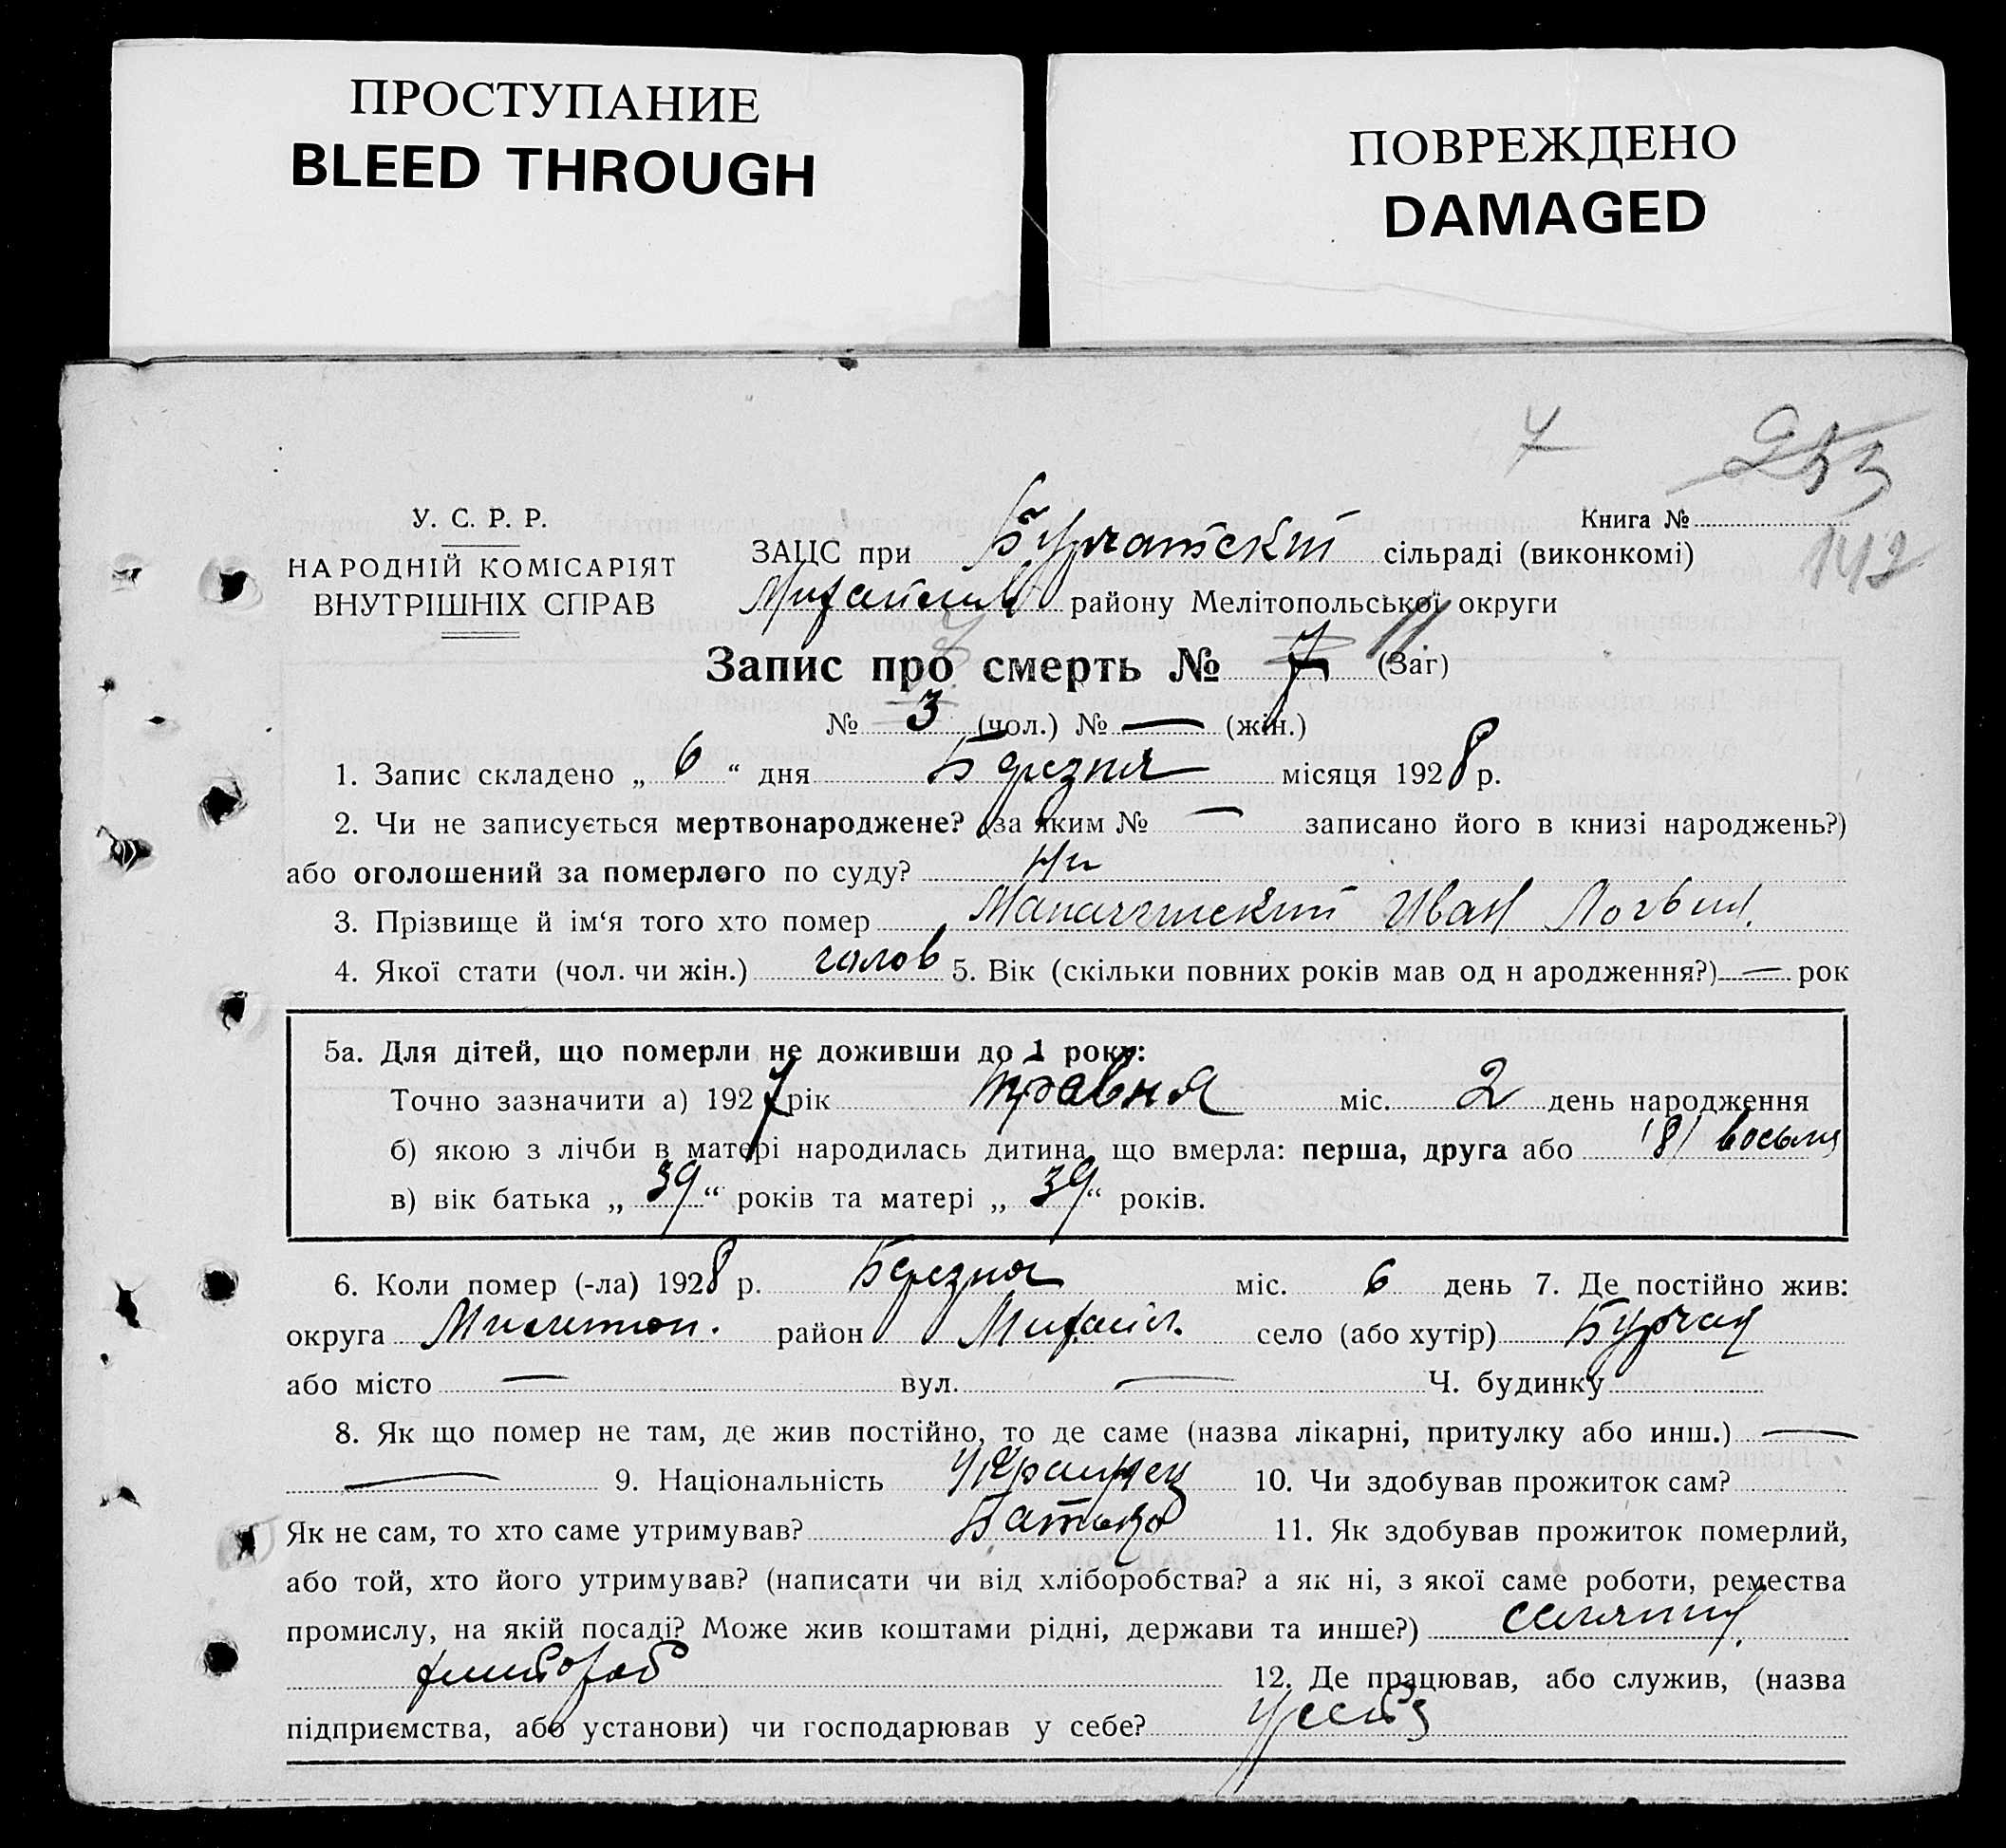 ПРОСТУПАНИЕ
BLEED THROUGH
ПОВРЕЖДЕНО
DAMAGED
7 253
У. С. Р. Р.
НАРОДНІЙ КОМІСАРІЯТ
ВНУТРІШНІХ СПРАВ
Книга №
142
ЗАЦС при Бурчатскій сільраді (виконкомі)
Михайлів району Мелітопольської округи
Запис про смерть № 7 11 (Заг)
№ 3 (чол.) № — (жін.)
1. Запис складено „ 6 “ дня Березня місяця 1928 р.
2. Чи не записується мертвонароджене? (за яким № — записано його в книзі народжень?)
або оголошений за померлого по суду? Ни
3. Прізвище й ім‘я того хто помер Иван Логвин.
4. Якої стати (чол. чи жін.) чолов 5. Вік (скільки повних років мав од н ародження?) — рок
5а. Для дітей, що померли не доживши до 1 року:
Точно зазначити а) 1927 рік травня міс. 2 день народження
б) якою з лічби в матері народилась дитина, що вмерла: перша, друга або /8/ восьмя
в) вік батька „ 39 “ років та матері „ 39 “ років.
6. Коли помер (-ла) 1928 р. Березня міс. 6 день 7. Де постійно жив:
округа Милитоп. район Михайл. село (або хутір) Бурчак
або місто — вул. — Ч. будинку
8. Як що помер не там, де жив постійно, то де саме (назва лікарні, притулку або инш.) —
— 9. Національність Украинец 10. Чи здобував прожиток сам?
Як не сам, то хто саме утримував? Батько 11. Як здобував прожиток померлий,
або той, хто його утримував? (написати чи від хліборобства? а як ні, з якої саме роботи, ремества
промислу, на якій посаді? Може жив коштами рідні, держави та инше?) селянин
хлибороб 12. Де працював, або служив, (назва
підприємства, або установи) чи господарював у себе? У себя